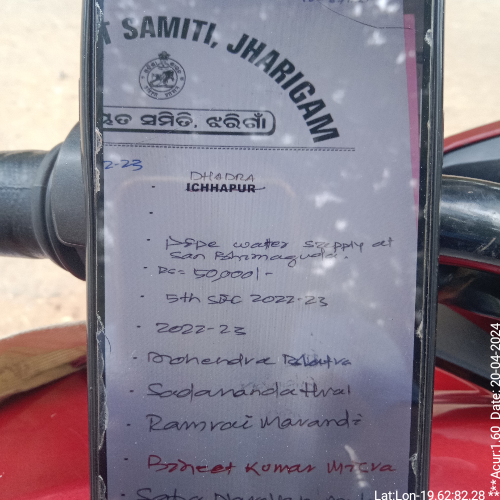 T SAMITI, JHARIGAM
ୟତ ସମିତି, ଝରିଗାଁ
2-23
DHADRA
ICHHAPUR
Pipe water supply at
San Bhimaguda.
Rs= 50,000/-
5th SFC 2022-23
2022-23
Mohendra
Sadananda
Ramrai Marandi
Bineet Kumar Misra
Lat:Lon-19.62:82.28
***Acur:1.60 Date: 20-04-2024